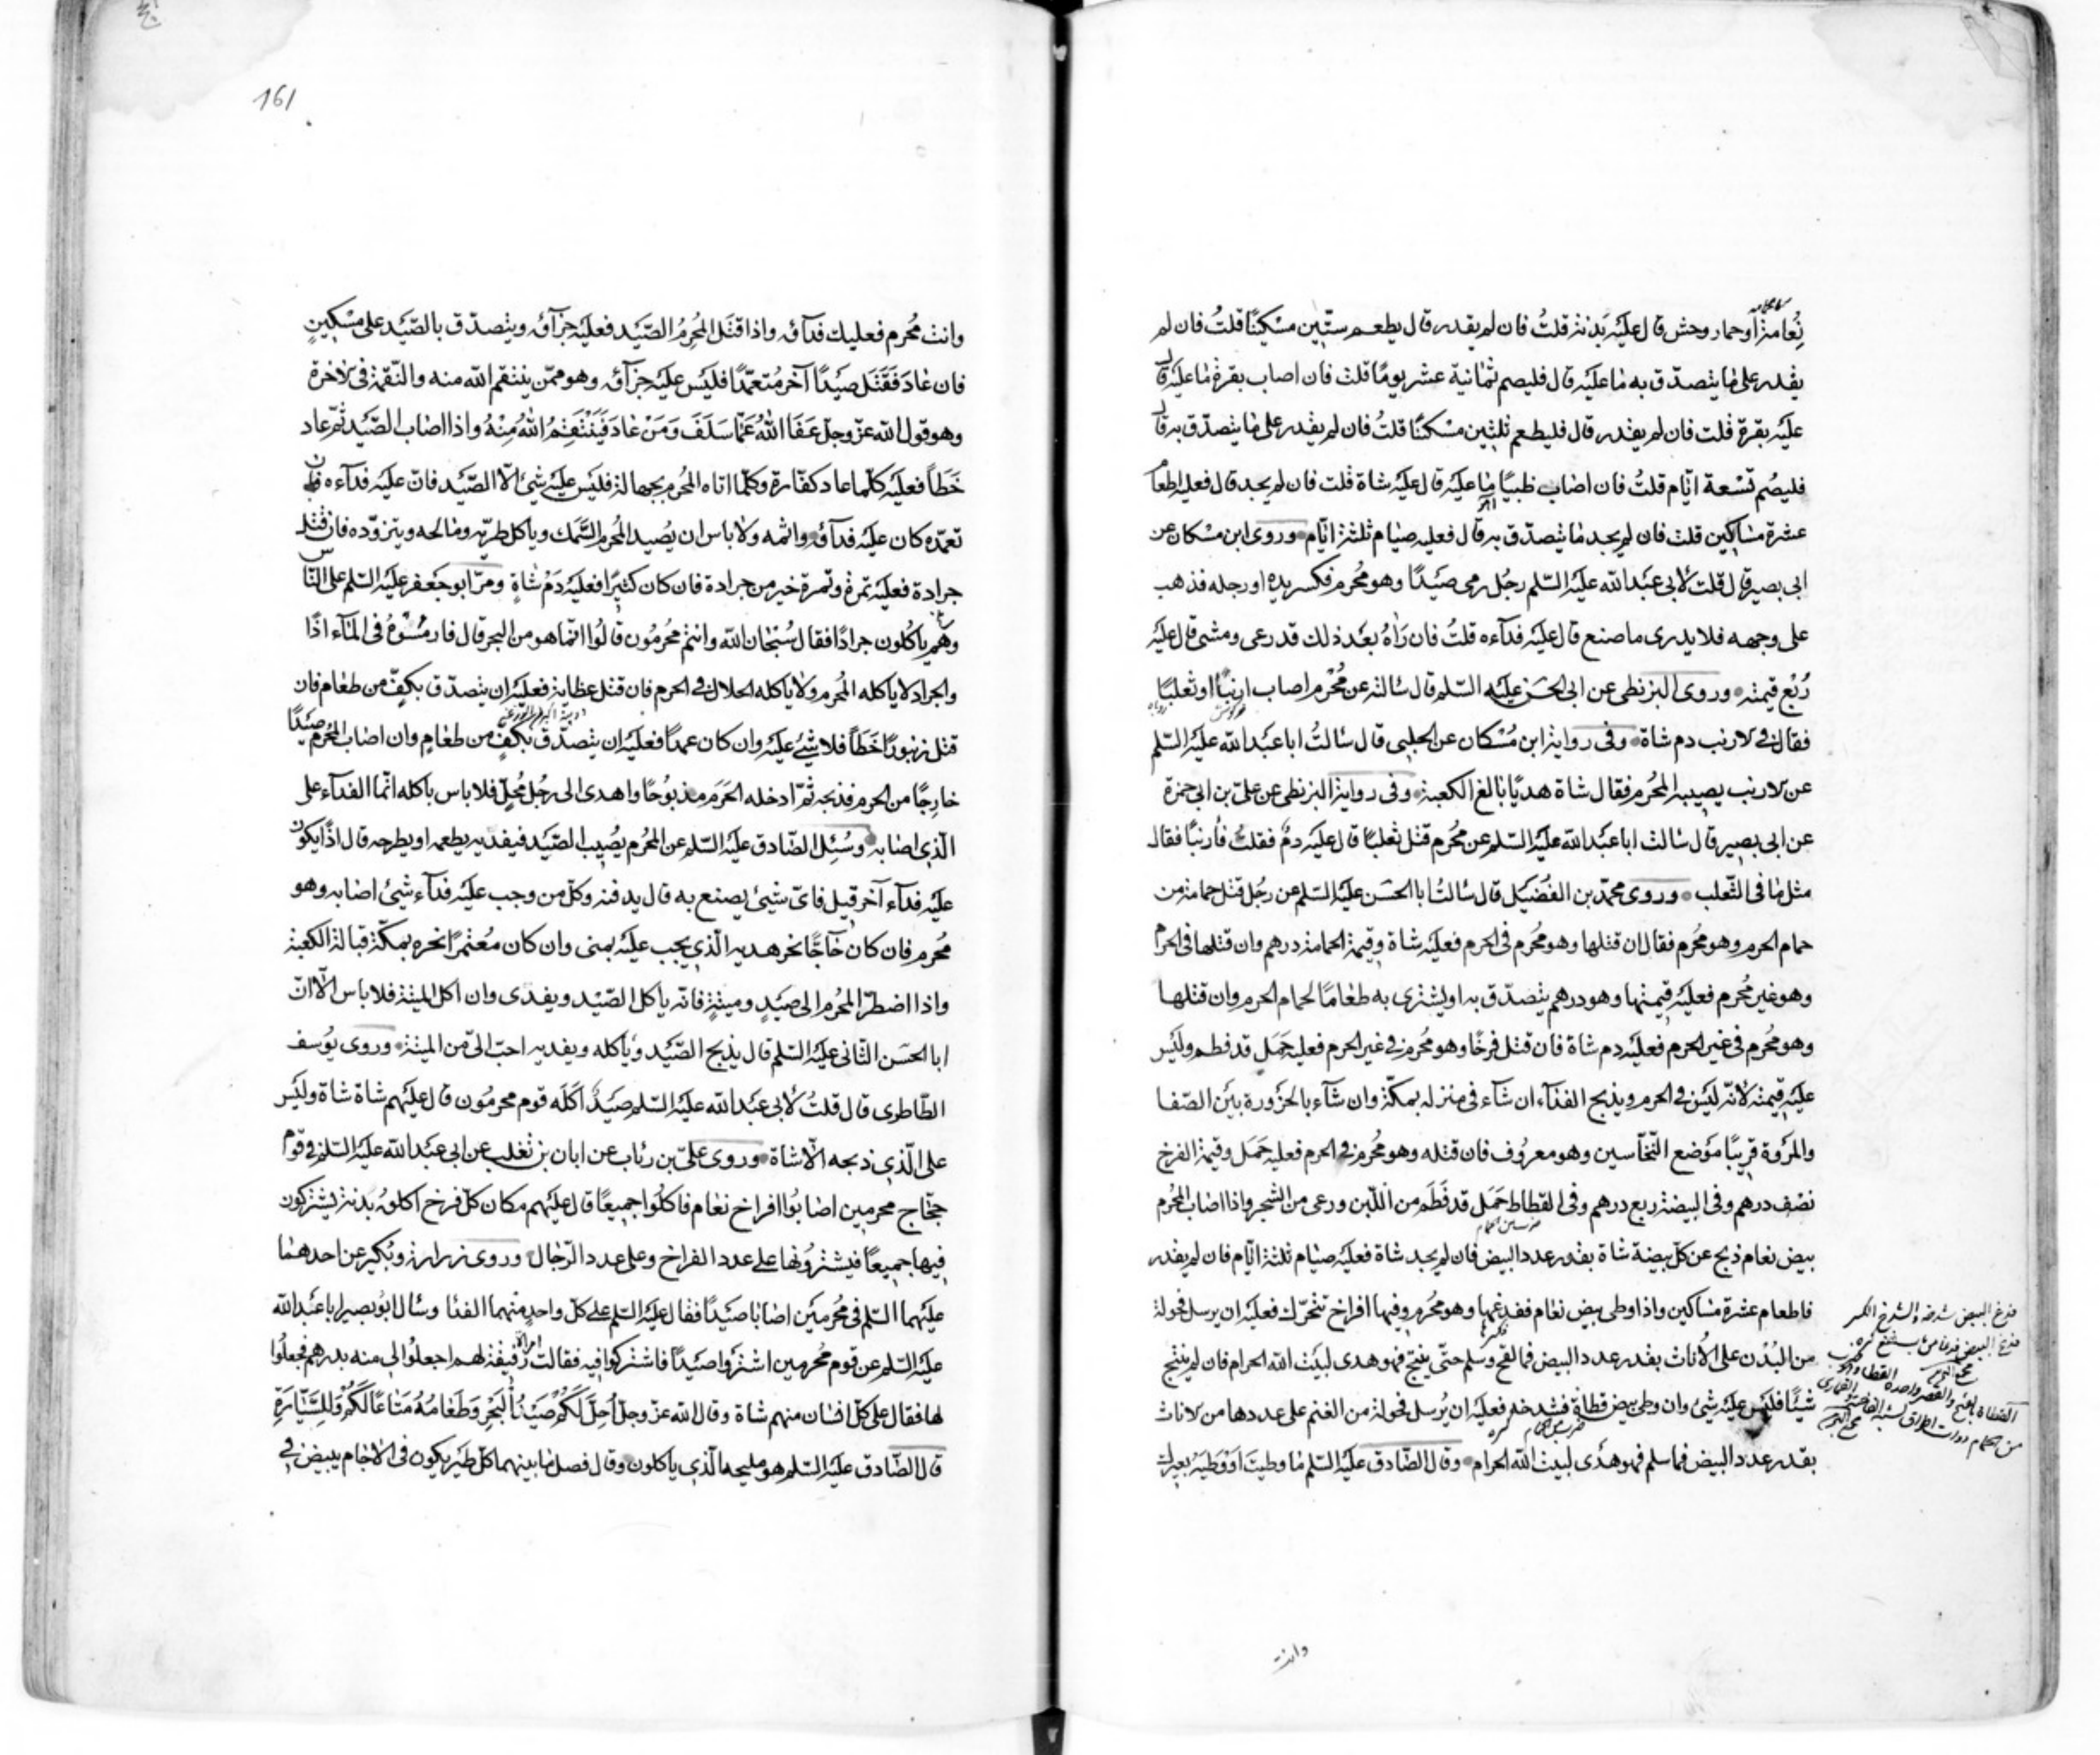 نعامة أو حمار وحش قال عليه بدنة قلتُ فان لم يقدر قال يطعم ستّين مسكينًا قلتُ فان لم
يقدر على ما يتصدّق به ما عليه قال فليصم ثمانية عشر يومًا قلت فان اصاب بقرة ما عليه قال
عليه بقرة قلت فان لم يقدر قال فليطعم ثلثين مسكينًا قلتُ فان لم يقدر على ما يتصدّق به قال
فليصُم تسْعة ايّام قلتُ فان اصاب ظبيًا ما عليه قال عليه شاة قلت فان لم يجد قال فعليه اطعام
عشرة مساكين قلت فان لم يجد ما يتصدّق به قال فعليه صيام ثلثة ايّام وروى ابن مسْكان عن
ابى بصير قال قلت لأبى عبد الله عليه السّلم رجُل رمى صيدًا وهو مُحرم فكسر يده او رجله فذهب
على وجهه فلا يدرى ما صنع قال عليه فدآءه قلتُ فان رَاهُ بعد ذلك قد رعى ومشى قال عليه
رُبْع قيمته وروى البزنطى عن ابى الحسَن عليه السّلم قال سالته عن مُحْرم اصاب ارنبًا او ثعلبًا
فقال فى الارنب دم شاة وفى رواية ابن مُسْكان عن الحلبى قال سالتُ ابا عبد الله عليه السّلم
عن الارنب يصيبه المُحرم فقال شاة هديًا بالغ الكعبة وفى رواية البزنطى عن علىّ بن ابى حمزة
عن ابى بصير قال سالت ابا عبد الله عليه السّلم عن مُحرم قتل ثعلبًا قال عليه دمٌ فقلتُ فأرنبًا فقال
مثل ما فى الثّعلب وروى محمّد بن الفُضيل قال سالتُ ابا الحسَن عليه السّلم عن رجُل قتل حمامة من
حمام الحرم وهو مُحرم فقال ان قتلها وهو مُحرم فى الحرم فعليه شاة وقيمة الحمامة درهم وان قتلها فى الحرم
وهو غير مُحرم فعليه قيمتها وهو درهم يتصدّق به او يشترى به طعامًا لحمام الحرم وان قتلها
وهو مُحرم فى غير الحرم فعليه دم شاة فان قتل فرخًا وهو مُحرم فى غير الحرم فعليه حَمَل قد فطم وليس
عليه قيمته لأنّه ليس فى الحرم ويذبح الفدآء ان شآء فى منزله بمكّة وان شآء بالحزورة بين الصّفا
والمروة قريبًا مَوْضع النّخّاسين وهو معرُوف فان قتله وهو مُحرم فى الحرم فعليه حَمَل وقيمة الفرخ
نصْف درهم وفى البيضة ربع درهم وفى القطاط حَمَل قد فَطَم من اللّبن ورعى من الشّجر واذا اصاب المُحْرم
بيض نعام ذبح عن كلّ بيضة شاة بقدر عدد البيض فان لم يجد شاة فعليه صيام ثلثة ايّام فان لم يقدر
فاطعام عشرة مساكين واذا وطى بيض نعام ففدغها وهو مُحرم وفيها افراخ تتحرّك فعليه ان يرسل فحولة
من البُدْن على الأناث بقدر عدد البيض فما لقح وسلم حتّى ينتج فهو هدى لبيت الله الحرام فان لم ينتج
شيئًا فليس عليه شئ وان وطى بيض قطاة فشدخه فعليه ان يُرسل فحولة من الغنم على عددها من الاناث
بقدر عدد البيض فما سلم فهو هدى لبيت الله الحرام وقال الصّادق عليه السّلم ما وطيتَ او وَطيَه بعيرك
وانت
161
وانت مُحرم فعليك فدآؤه واذا قتَل المُحرمُ الصّيد فعليه جزآؤه ويتصدّق بالصّيد على مسْكينٍ
فان عادَ فَقَتَل صيدًا آخر مُتعمّدًا فليس عليه جزآؤه وهو ممّن ينتقم الله منه والنّقمة فى الآخرة
وهو قول الله عزّ وجلّ عَفَا اللهُ عَمّا سَلَفَ وَمَنْ عَادَ فَيَنْتَقِمُ اللهُ مِنْهُ واذا اصاب الصّيد ثمّ عاد
خَطَأً فعليه كلّما عاد كفّارة وكلّما اتاه المُحرم بجهالة فليس عليه شئ الّا الصّيد فانّ عليه فدآءه فان
تعمّده كان عليه فدآؤه واثمه ولا باس ان يُصيد المُحرم السّمك وياكل طريّه ومالحه ويتزوّده فان قتل
جرادة فعليه تمرة وتمرة خير من جرادة فان كان كثيرًا فعليه دَمْ شاةٍ ومرّ ابو جعفر عليه السّلم على النّاس
وهم ياكُلون جرادًا فقال سُبْحان الله وانتم مُحرمُون قالُوا انّما هو من البحر قال فارمسُوهُ فى المآء اذًا
والجراد لا ياكله المُحرم ولا ياكله الحلال فى الحرم فان قتل عظاية فعليه ان يتصدّق بكفّ من طعام فان
قتل زنبورًا خَطَأً فلا شئ عليه وان كان عمدًا فعليه ان يتصدّق بكفّ من طعامٍ وان اصاب المُحْرم صيدًا
خارجًا من الحرم فذبحه ثمّ ادخله الحَرَم مذبُوحًا واهدى الى رجُل مُحِلّ فلا باس باكله انّما الفدآء على
الّذى اصابه وسُئِل الصّادق عليه السّلم عن المحرم يُصيب الصّيد فيفديه يطعمه او يطرحه قال اذًا يكون
عليه فدآء آخر قيل فاىّ شئ يصنع به قال يدفنه وكلّ من وجب عليه فدآء شئ اصابه وهو
مُحرم فان كان حآجًّا نحر هديه الّذى يجب عليه بمنى وان كان مُعْتمرًا نحره بمكّة قبالة الكعبة
واذا اضطرّ المُحرم الى صيدٍ وميتةٍ فانّه ياكل الصّيْد ويفدى وان اكل الميتة فلا باس الّا انّ
ابا الحسَن الثّانى عليه السّلم قال يذبح الصّيد وياكله ويفديه احبّ الىّ من الميتة وروى يُوسف
الطّاطرى قال قلتُ لأبى عبد الله عليه السّلم صيدٌ اكَلَه قوم محرمُون قال عليهم شاة شاة وليس
على الّذى ذبحه الّا شاة وروى علىّ بن رئاب عن ابان بن تغلب عن ابى عبد الله عليه السّلم فى قوم
حجّاج محرمين اصابُوا افراخ نعام فاكلُوا جميعًا قال عليهم مكان كلّ فرخ اكلوهُ بدنة يشتركون
فيها جميعًا فيشترُونها على عدد الفراخ وعلى عدد الرّجال وروى زرارة وبُكير عن احدهما
عليهما السّلم فى مُحرمَين اصابا صيدًا فقال عليه السّلم على كلّ واحدٍ منهما الفدا وسال ابُو بصير ابا عبد الله
عليه السّلم عن قوم مُحرمين اشترَوا صيدًا فاشتركُوا فيه فقالت امراة رفيقة لهم اجعلُوا لى منه بدرهم فجعلُوا
لها فقال على كلّ انسان منهم شاة وقال الله عزّ وجلّ اُحِلَّ لَكُمْ صَيْدُ الْبَحْرِ وَطَعَامُهُ مَتَاعًا لَكُمْ وَلِلسَّيّارَةِ
قال الصّادق عليه السّلم هو مليحه الّذى ياكلون وقال فصل ما بينهما كلّ طير يكون فى الآجام يبيض فى